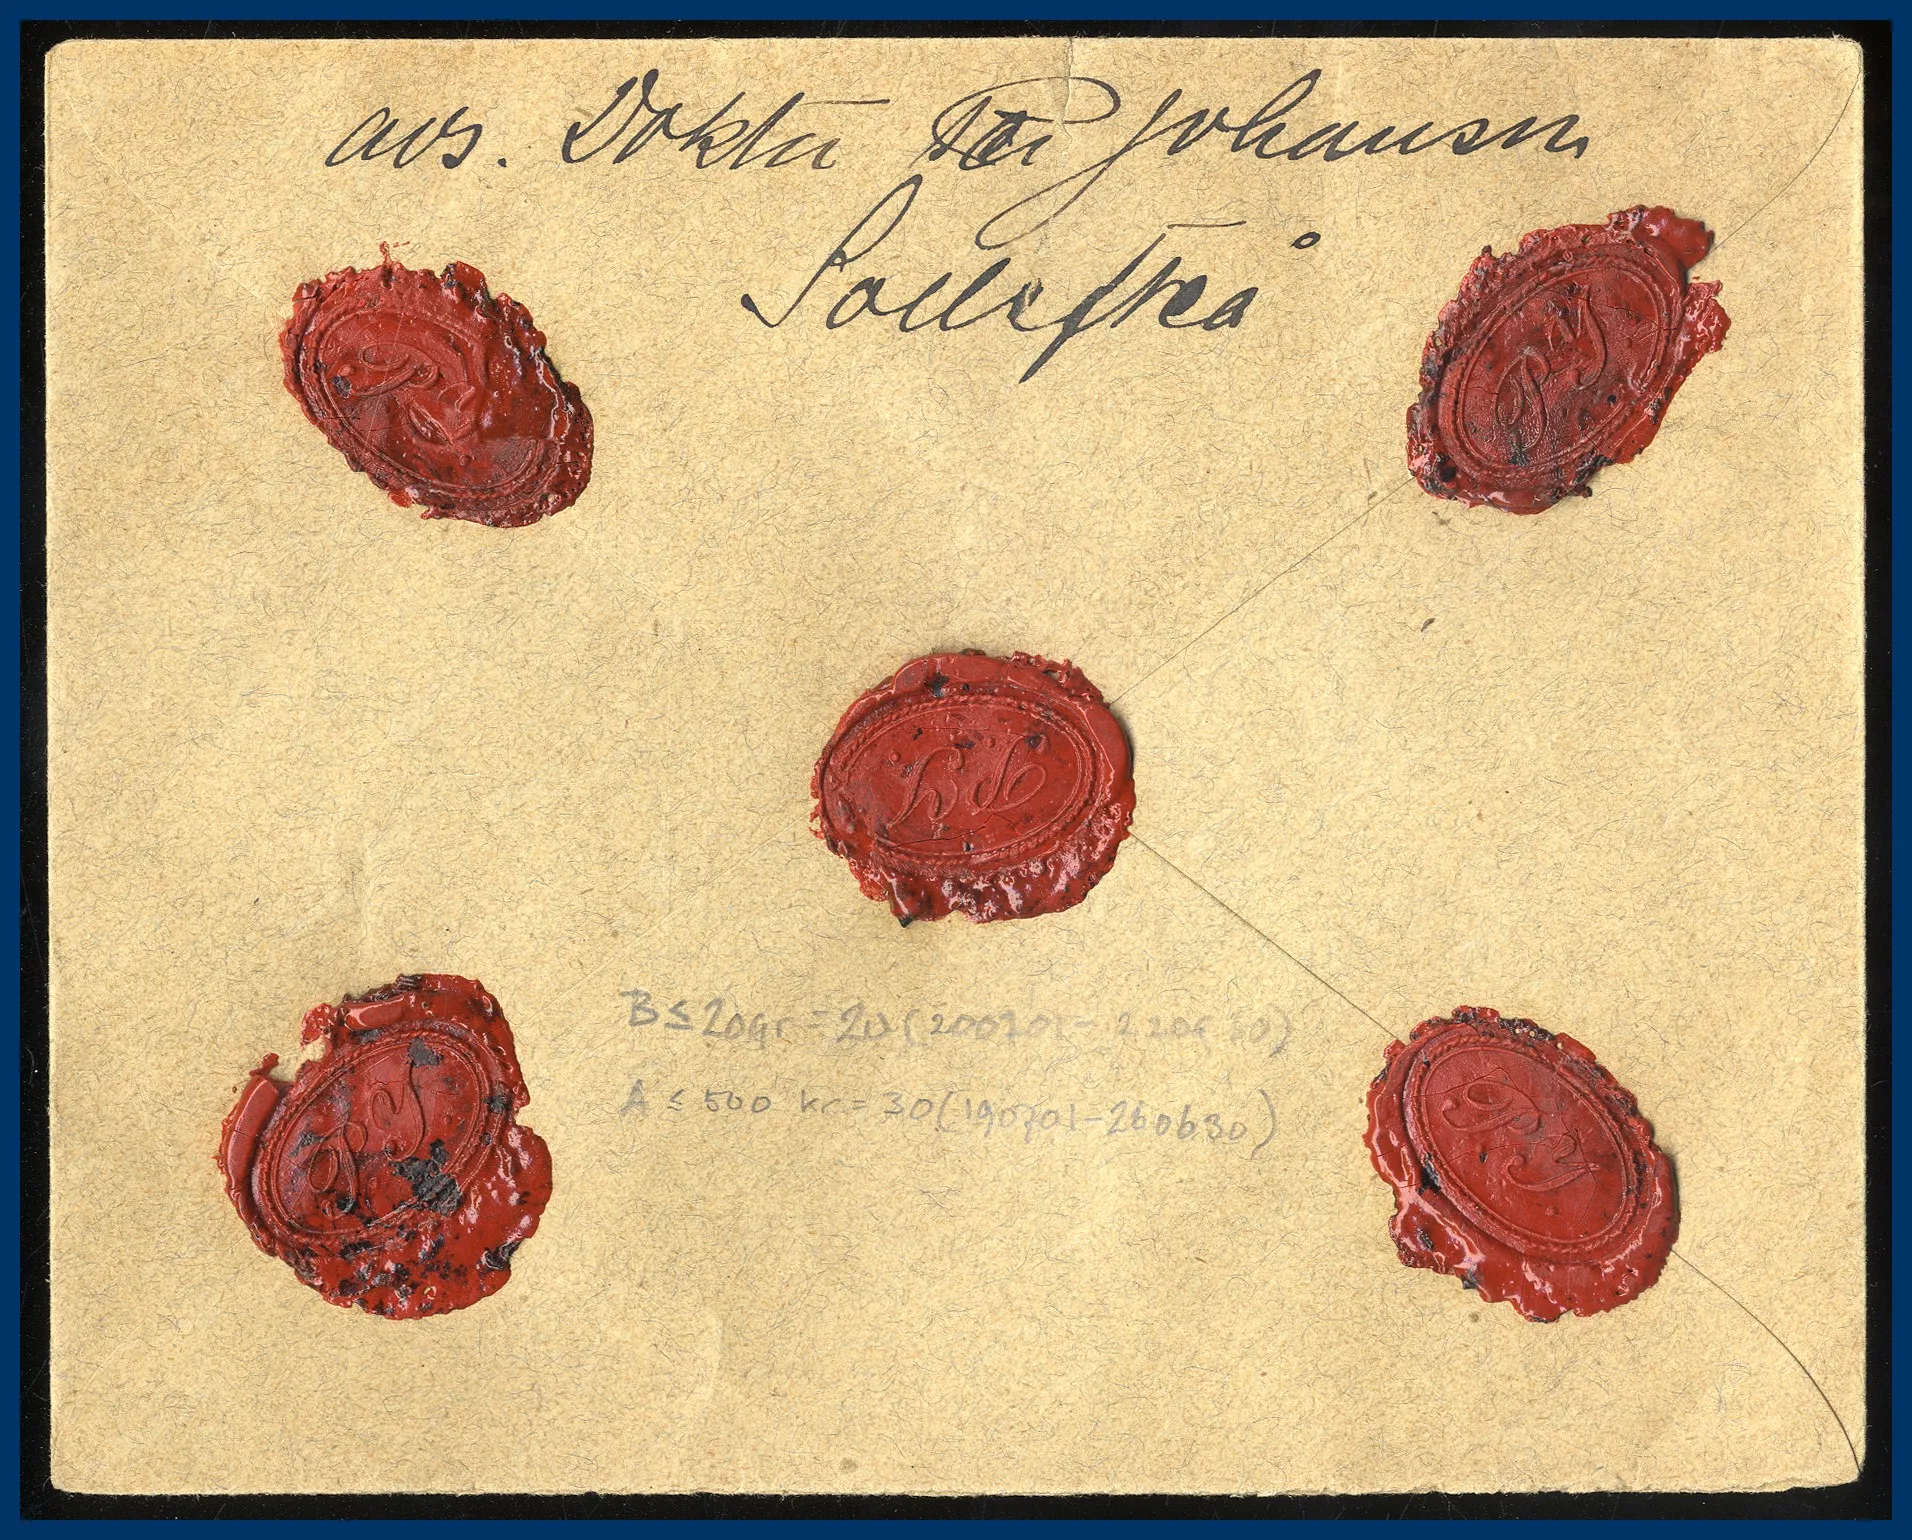 avs. Doktor Per Johansson
Sollefteå
P J
P J
P J
B ≤ 20gr = 20 (200701-220630)
A ≤ 500 kr = 30 (190701-260630)
P J
P J